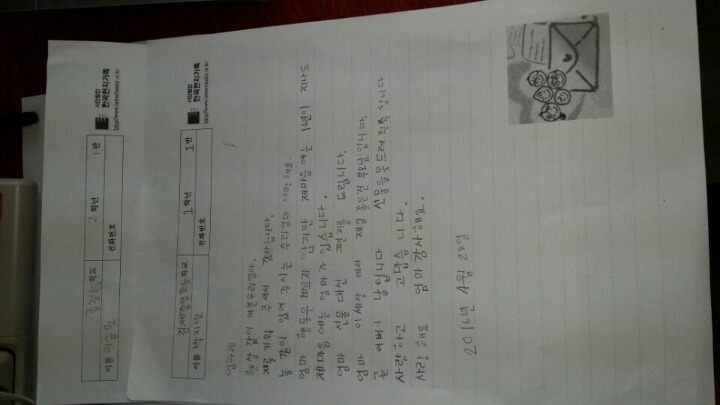 학교 2 학년 1 반
이름 이승민 전화번호
사단법인
한국편지가족
초등학교 2 학년 1 반
이름 박지민 전화번호
사단법인
한국편지가족
엄마께
우리엄마.
저를 주셔서 감사합니다.
늘 같이 있어 주시는 우리엄마 사랑해요.
엄마 제마음에는 1년이 지나도
제마음에는 엄마가 있습니다.
엄마 선물대신 편지를 드립니다.
엄마 이세상에서 제일좋은건 부모님입니다.
곧 어버이 날입니다 선물을못드려 죄송합니다
사랑하고 고맙습니다.
사랑해요 엄마 감사해요.
2016년 4월 28일